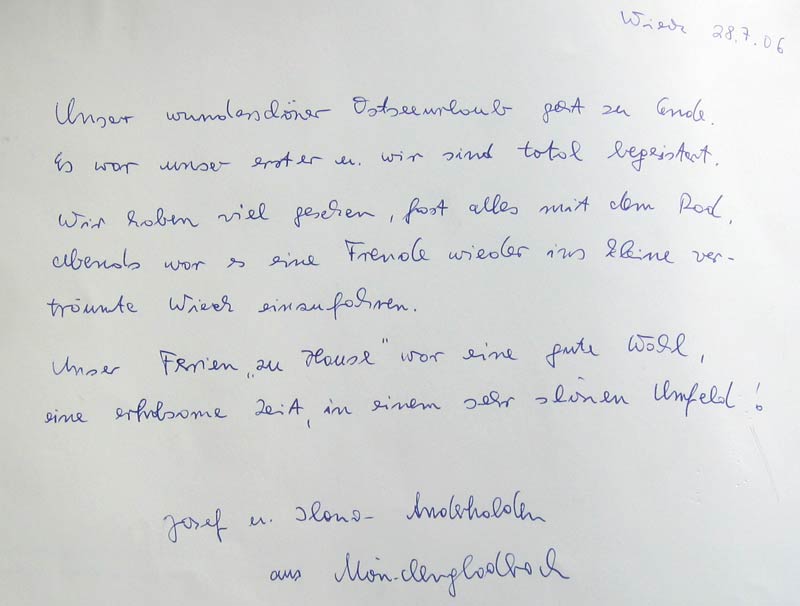 Wieck 28.7.06
Unser wunderschöner Ostseeurlaub geht zu Ende.
Es war unser erster u. wir sind total begeistert.
Wir haben viel gesehen, fast alles mit dem Rad,
abends war es eine Freude wieder ins kleine ver-
träumte Wieck einzufahren.
Unser Ferien „zu Hause" war eine gute Wahl,
eine erholsame Zeit, in einem sehr schönen Umfeld!
Josef u. Ilona Anderhalden
aus Mönchengladbach